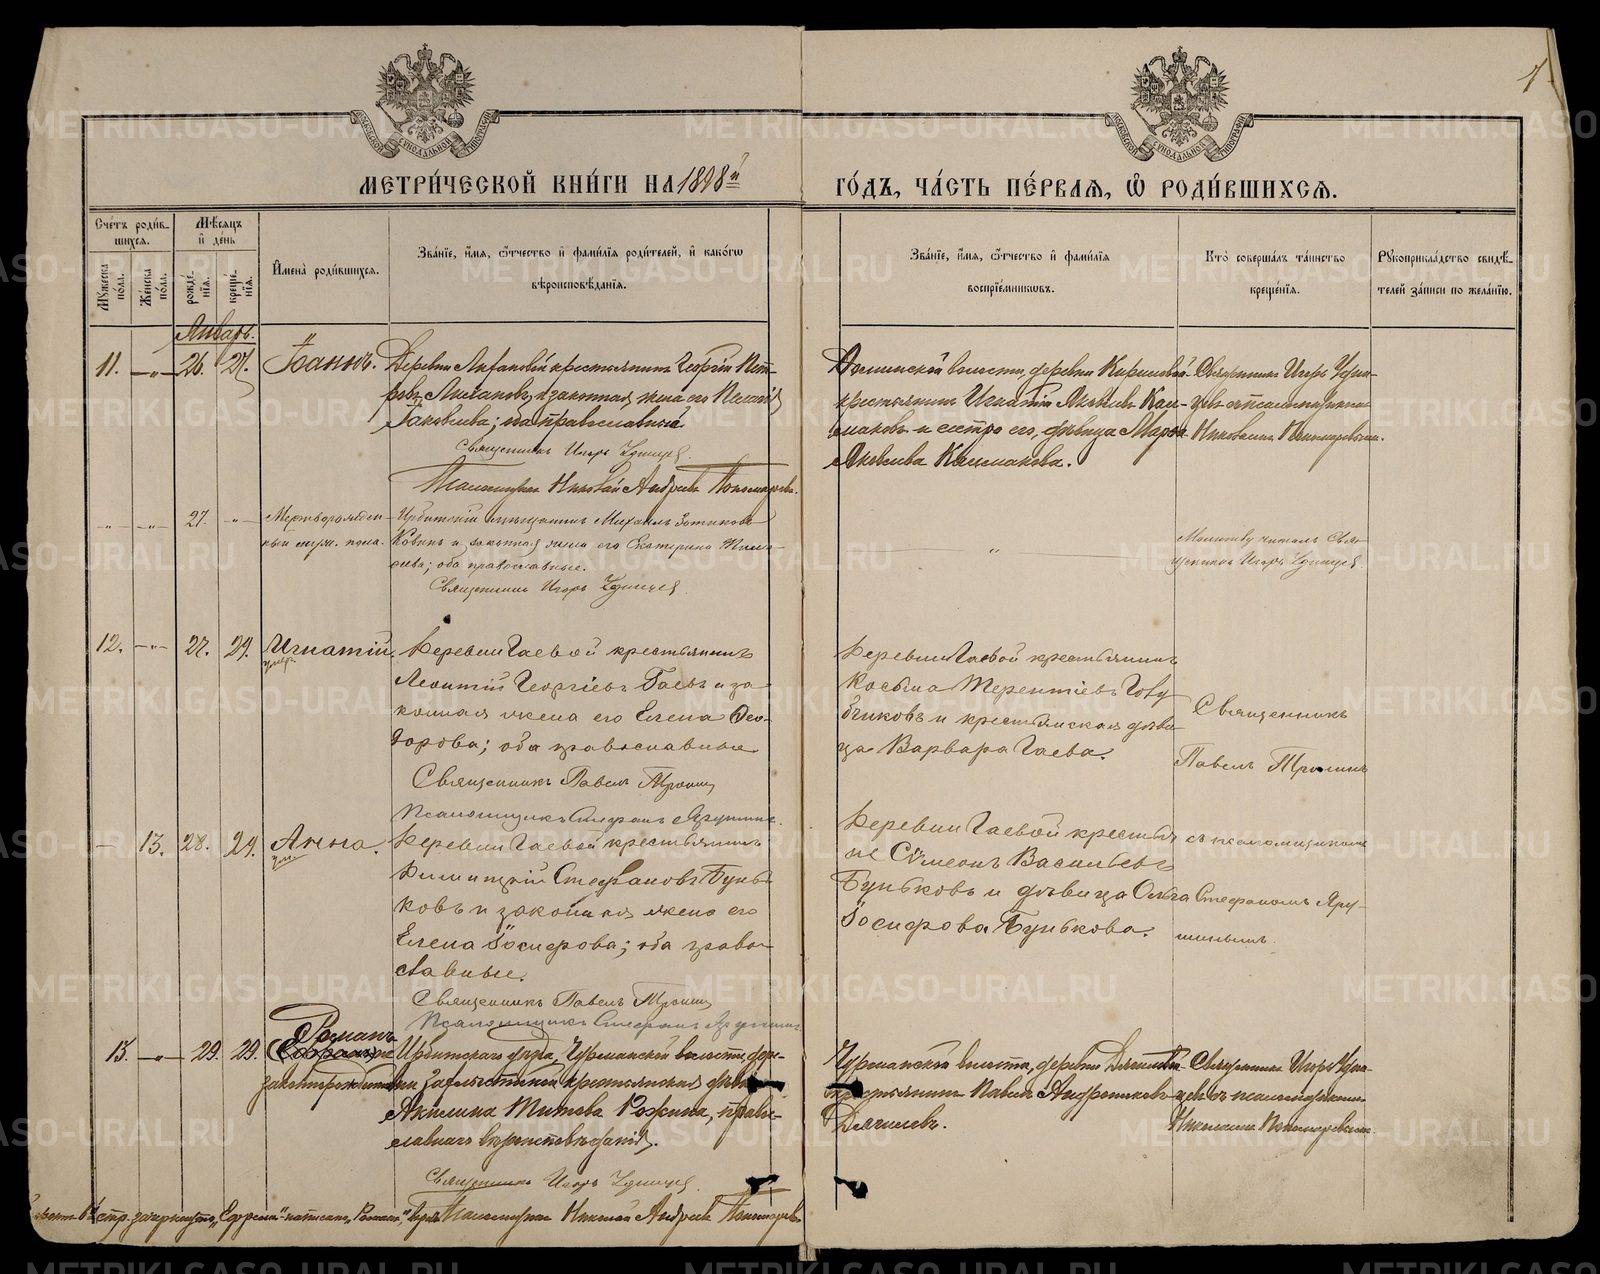 1
МЕТРИ́ЧЕСКОЙ КНИ́ГИ НА 1898й
ГО́ДЪ, ЧА́СТЬ ПЕ́РВАЯ, Ѿ РОДИ́ВШИХСЯ.
Сче́тъ роди́в-
шихся.
Му́жеска по́ла.
Же́нска по́ла.
Мѣ́сяцъ
и҆ де́нь
рожде́-
нїя.
креще́-
нїя.
И҆мена̀ роди́вшихся.
Зва́нїе, и҆́мя, ѻ҆́тчество и҆ фами́лїя роди́телей, и҆ како́гѡ
вѣроисповѣ́данїя.
Зва́нїе, и҆́мя, ѻ҆́тчество и҆ фами́лїя
воспрїе́мниковъ.
Кто̀ соверша́лъ та́инство
креще́нїя.
Рꙋкоприкла́дство свидѣ́-
телей за́писи по жела́нїю.
Январь.
11. —„— 26. 27. Іоаннъ.
Деревни Лихановой крестьянинъ Георгій Пет-
ровъ Лихановъ и законная жена его Пелагія
Іаковлева; оба православные
Священникъ Игорь Удинцев.
Псаломщикъ Николай Андреевъ Пономаревъ.
деревни Кириловой
крестьянинъ Игнатій Яковлевъ
и сестра его, дѣвица Марѳа
Яковлева
Священникъ Игорь Удин-
цевъ съ псаломщикомъ
Николаемъ Пономаревымъ.
—„— —„— 27. —„— Мертворожден-
ный муж. пола.
Ирбитскій мѣщанинъ Михаилъ
и законная жена его Екатерина
оба православные.
Священникъ Игорь Удинцев.
„
Молитву читалъ Свя-
щенникъ Игорь Удинцев.
12. —„— 27. 29. Игнатій
умер.
Деревни Гаевой крестьянинъ
Леонтій Георгіевъ Гаевъ и за-
конная жена его Елена Ѳео-
дорова; оба православные
Священникъ Павелъ
Псаломщикъ Стефанъ Ярушинъ.
Деревни Гаевой крестьянинъ
Косьма Терентіевъ Голу-
бчиковъ и крестьянская дѣви-
ца Варвара Гаева.
Священникъ
Павелъ
— 13. 28. 29. Анна.
ум.
Деревни Гаевой крестьянинъ
Димитрій Стефановъ Бунь-
ковъ и законная жена его
Елена Іосифова; оба право-
славные.
Священникъ Павелъ
Псаломщикъ Стефанъ Ярушинъ
Деревни Гаевой крестья-
не Сѵмеонъ Васильевъ
Буньковъ и дѣвица Ольга
Іосифова Бунькова.
съ псаломщикомъ
Стефаномъ Яру-
шинымъ.
13. —„— 29. 29. Романъ
незаконнорожденный
Ирбитскаго уѣзда, Чурманской волости, дер-
евни крестьянская дѣвица
Акилина Титова право-
славнаго вѣроисповѣданія.
Священникъ Игорь Удинцев.
Псаломщикъ Николай Андреевъ Пономаревъ
Чурманской волости, деревни
крестьянинъ Павелъ Андрониковъ
Дягилевъ.
Священникъ Игорь Удин-
цевъ съ псаломщикомъ
Николаемъ Пономаревымъ.
стр. зачеркнуто „Ефремъ“ написано „Романъ“ вѣрно
METRIKI.GASO-URAL.RU